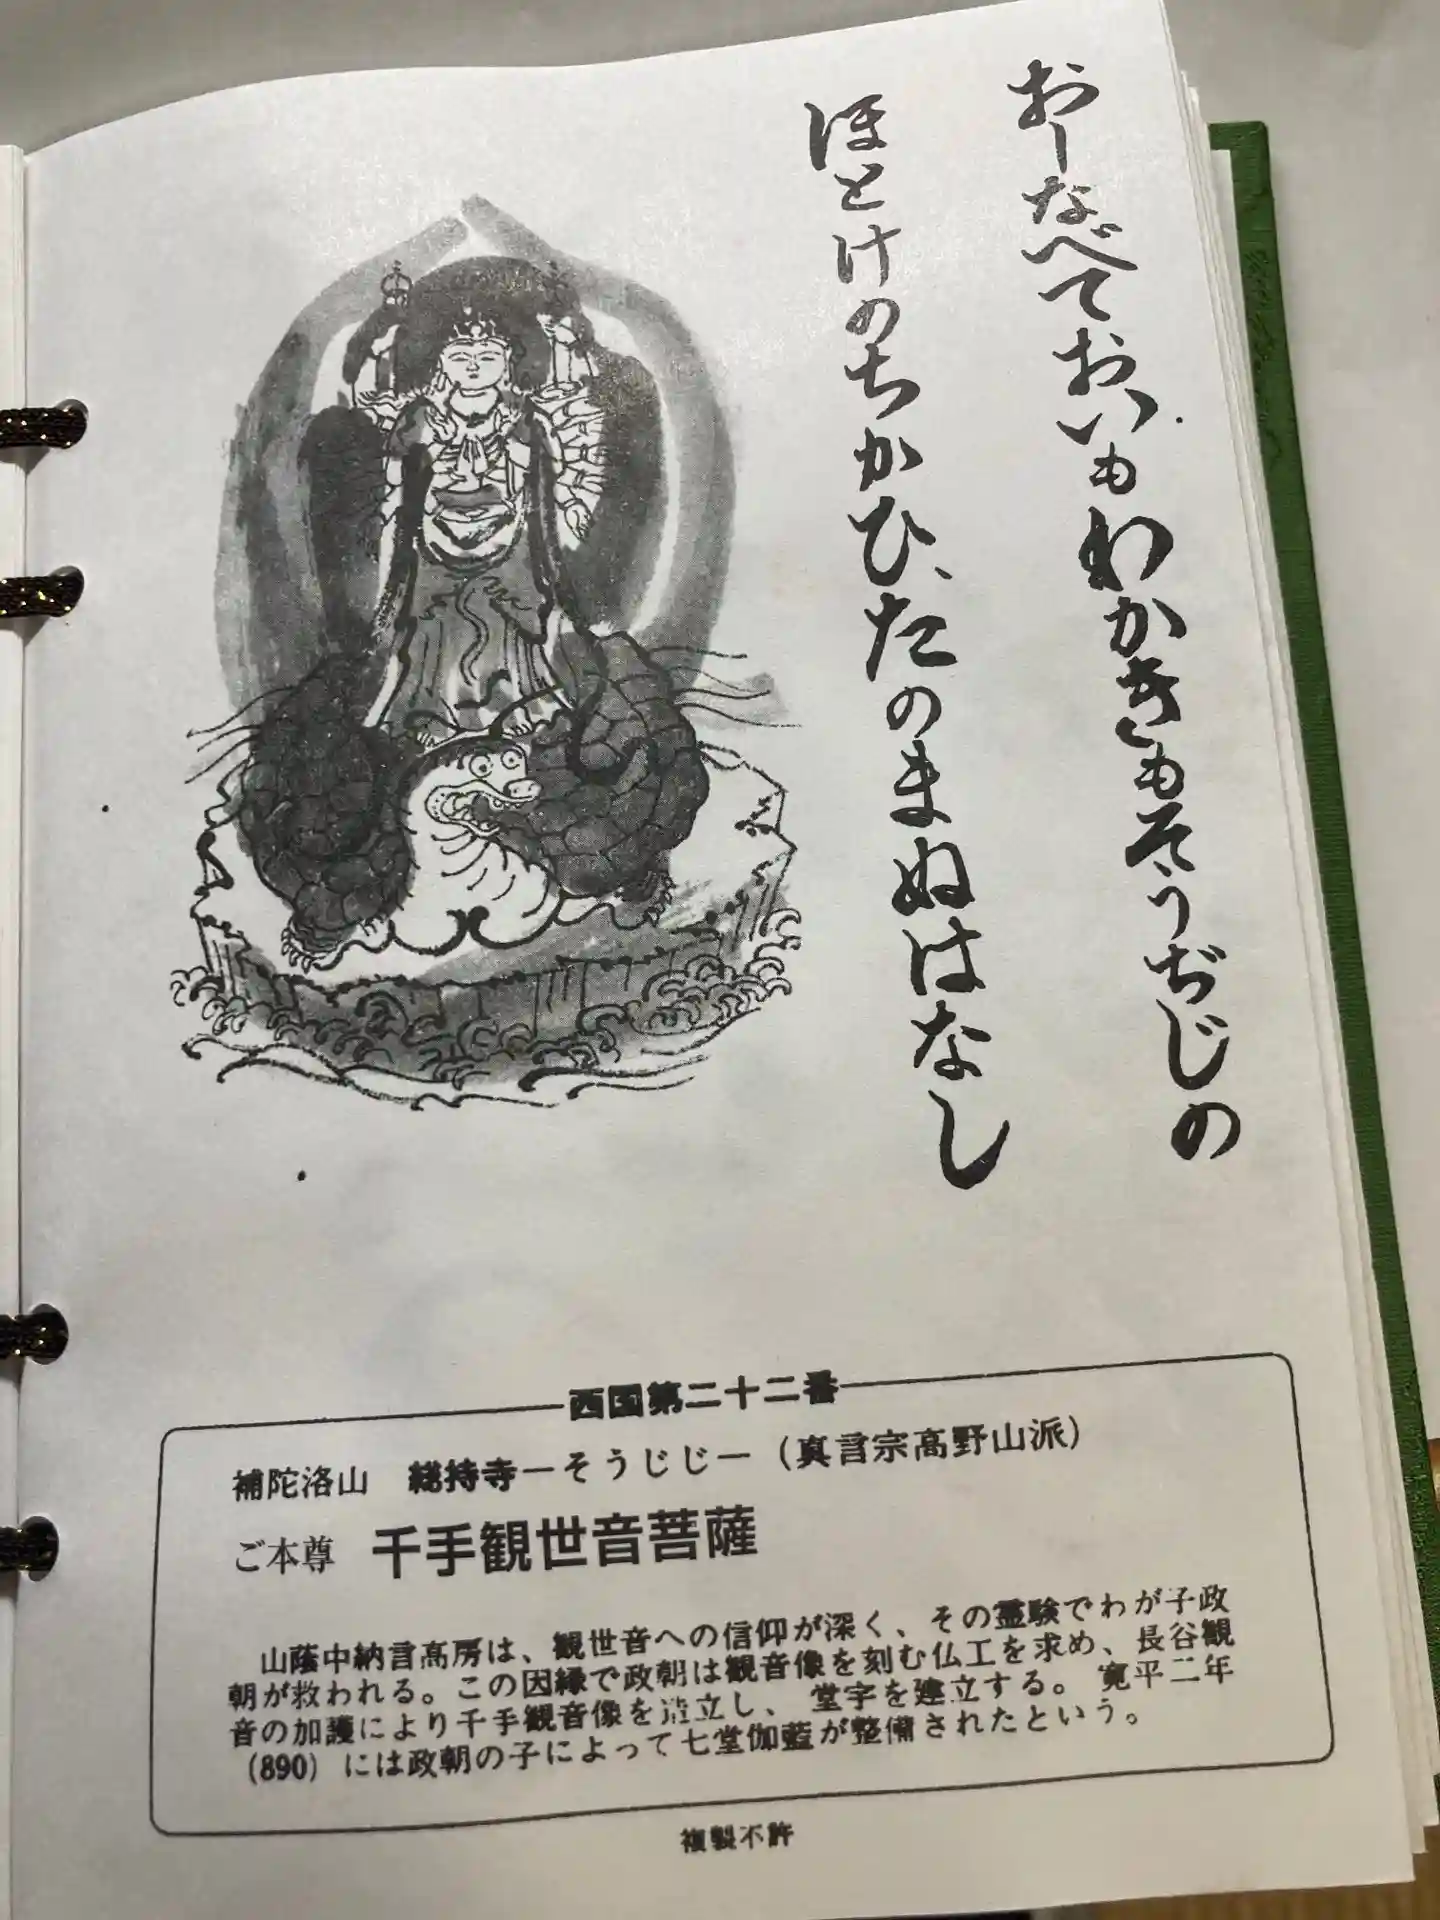 おしなべておいもわかきもそうぢじの
ほとけのちかひ、たのまぬはなし
西国第二十二番
補陀洛山 総持寺―そうじじ―（真言宗高野山派）
ご本尊 千手観世音菩薩
山蔭中納言高房は、観世音への信仰が深く、その霊験でわが子政
朝が救われる。この因縁で政朝は観音像を刻む仏工を求め、長谷観
音の加護により千手観音像を造立し、堂宇を建立する。寛平二年
（890）には政朝の子によって七堂伽藍が整備されたという。
複製不許